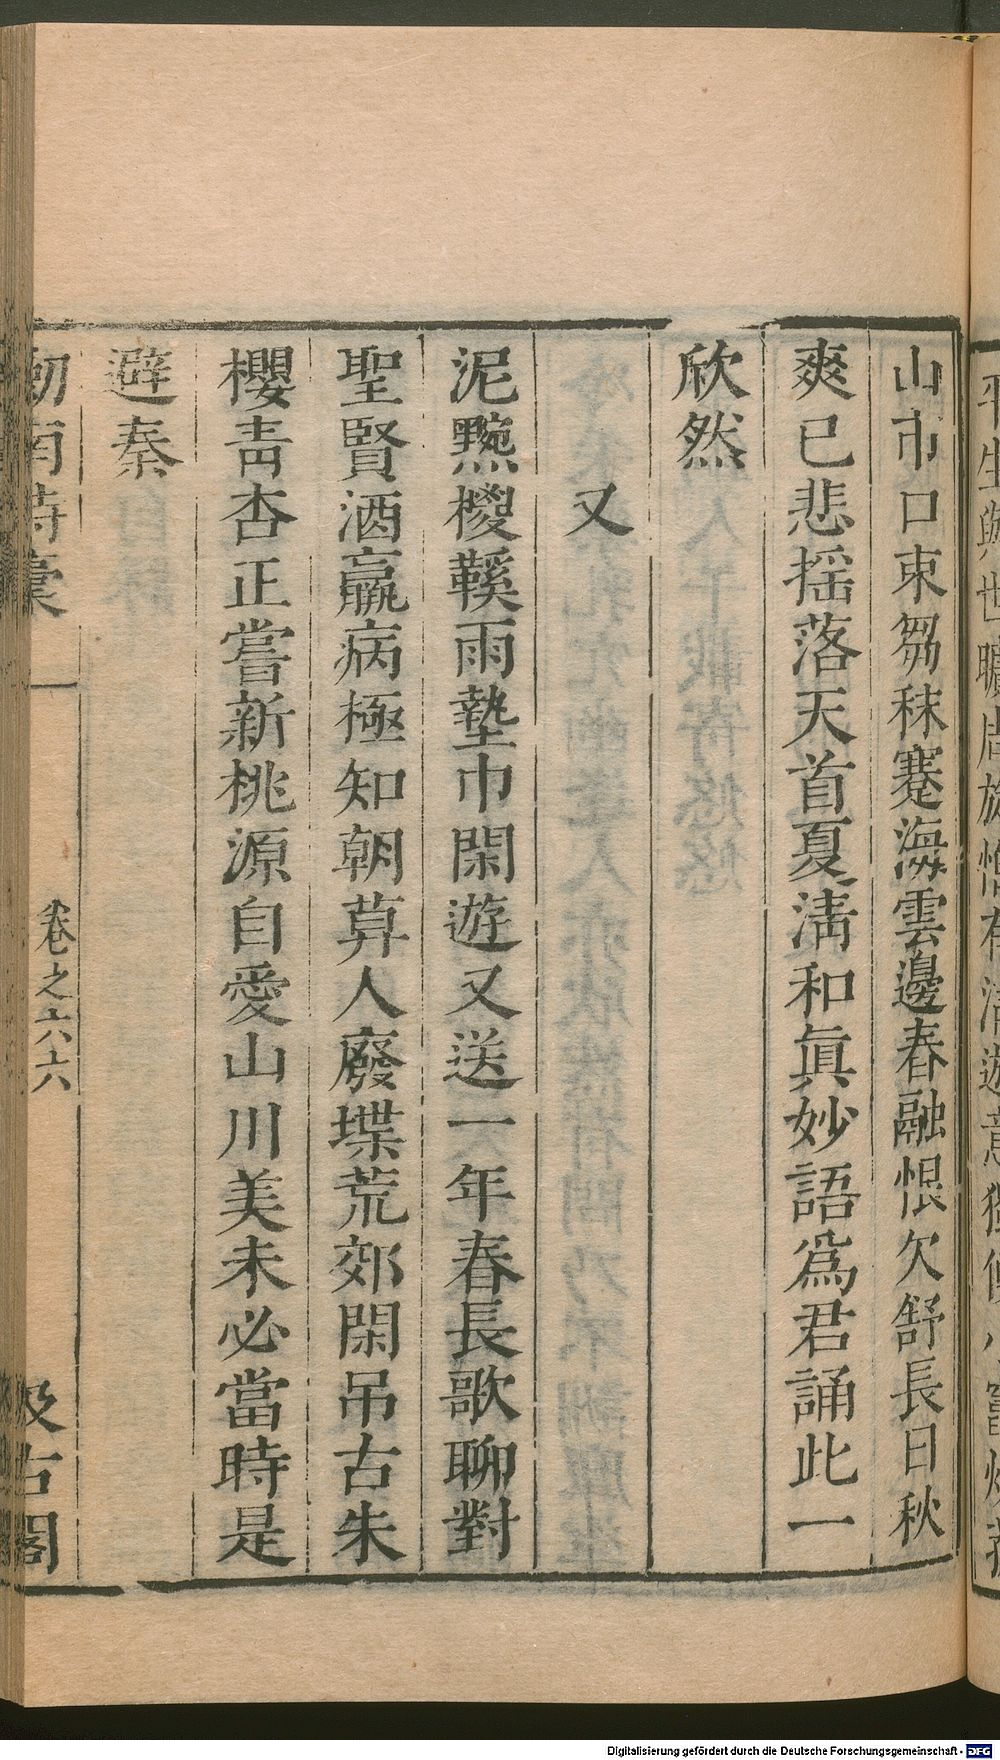 山市口束芻秣蹇海雲邊春融恨欠舒長日秋
爽已悲揺落天首夏淸和眞妙語爲君誦此一
欣然
又
泥黦椶鞵雨墊巾閑遊又送一年春長歌聊對
聖賢酒羸病極知朝莫人廢堞荒郊閑吊古朱
櫻靑杏正嘗新桃源自愛山川美未必當時是
避秦
劒南詩稾
卷之六六
汲古閣
Digitalisierung gefördert durch die Deutsche Forschungsgemeinschaft - DFG